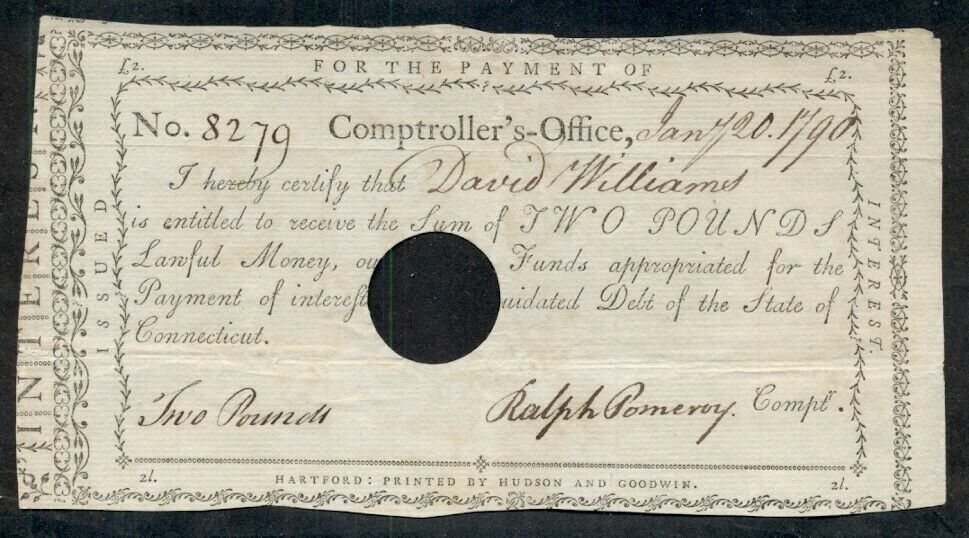 FOR THE PAYMENT OF
£2. £2.
No. 8279 Comptroller's-Office, Jany 20. 1790
I hereby certify that David Williams
is entitled to receive the Sum of TWO POUNDS
Lawful Money, ou Funds appropriated for the
Payment of interest uidated Debt of the State of
Connecticut.
Two Pounds Ralph Pomeroy. Compt.
2l. HARTFORD: PRINTED BY HUDSON AND GOODWIN. 2l.
ISSUED
INTEREST.